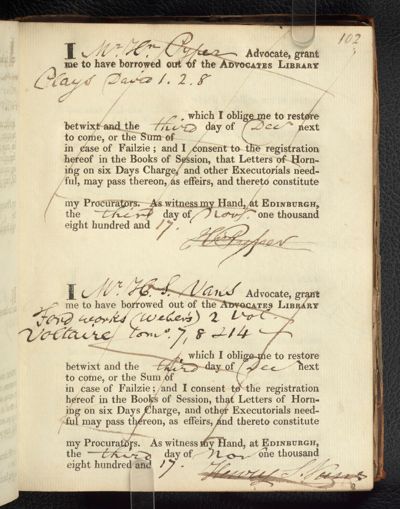 102
I Mr. Hy. Advocate, grant
me to have borrowed out of the ADVOCATES LIBRARY
Clays 1. 2. 8
which I oblige me to restore
betwixt and the third day of Decr next
to come, or the Sum of
in case of Failzie; and I consent to the registration
hereof in the Books of Session, that Letters of Horn-
ing on six Days Charge, and other Executorials need-
ful, may pass thereon, as effeirs, and thereto constitute
my Procurators. As witness my Hand, at EDINBURGH,
the third day of Novr. one thousand
eight hundred and 17.
I Mr. H. S. Vans Advocate, grant
me to have borrowed out of the ADVOCATES LIBRARY
Ford works (Webers) 2 vol
Voltaire toms. 7, 8 & 14
which I oblige me to restore
betwixt and the third day of Dec next
to come, or the Sum of
in case of Failzie; and I consent to the registration
hereof in the Books of Session, that Letters of Horn-
ing on six Days Charge, and other Executorials need-
ful may pass thereon, as effeirs, and thereto constitute
my Procurators. As witness my Hand, at EDINBURGH,
the third day of Nov one thousand
eight hundred and 17.
Henry S. Vans